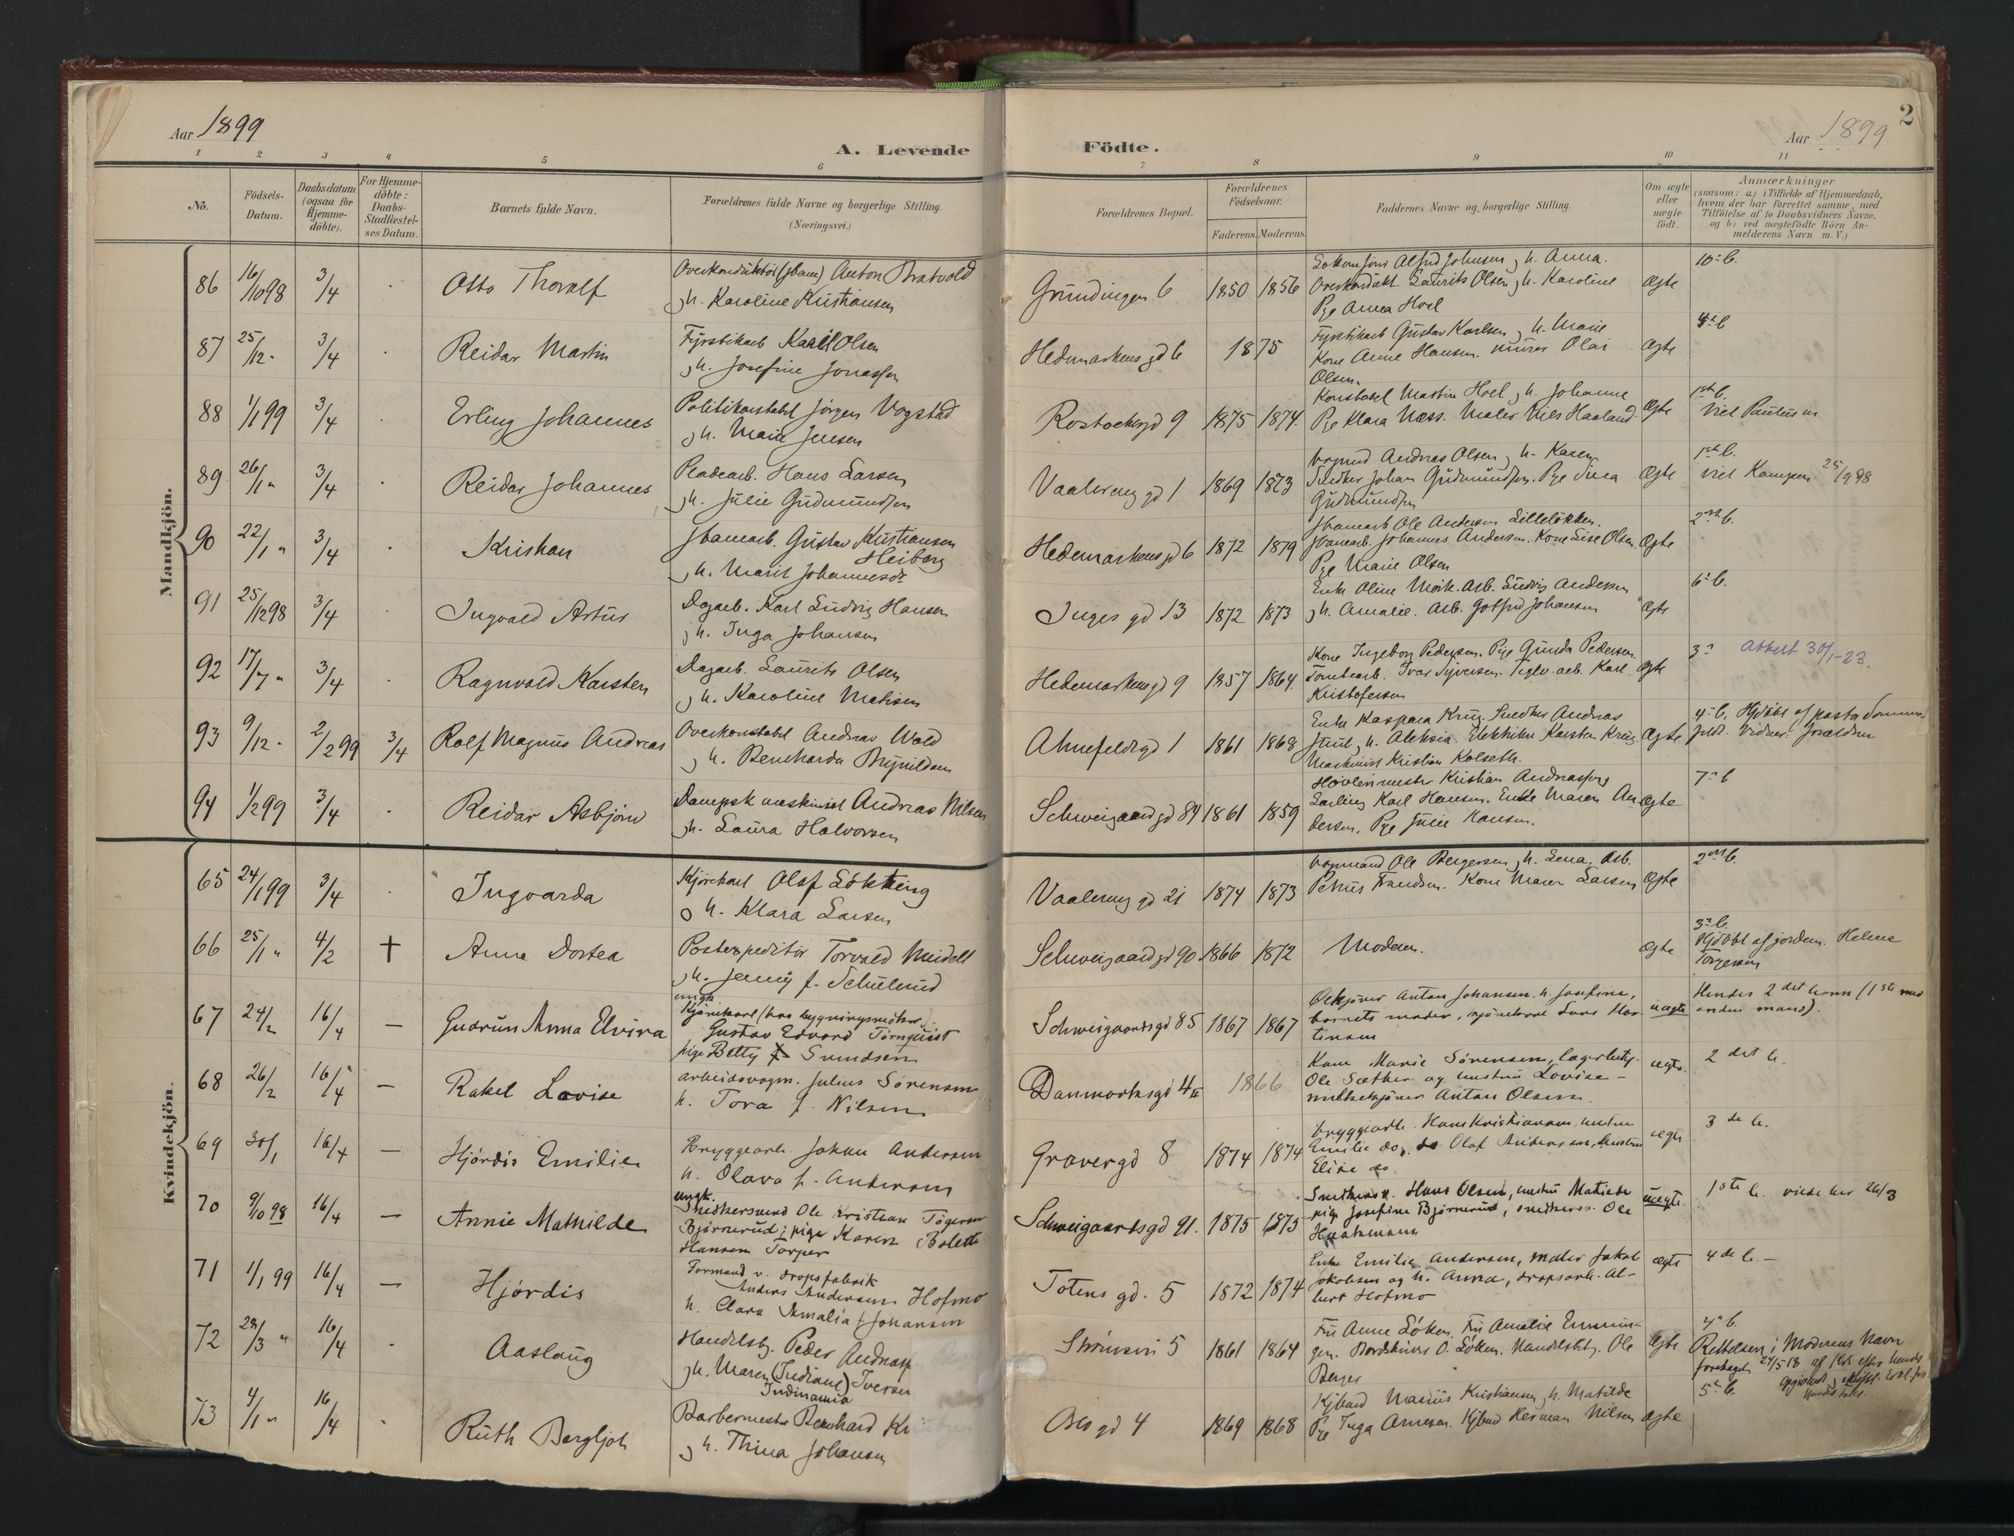 Aar 1899
A. Levende
Födte.
Aar 1899
2
1 2 3 4 5 6 7 8 9 10 11
No.
Födsels-Datum.
Daabsdatum (ogsaa for Hjemme-döbte).
For Hjemme-döbte: Daabs-Stadfæstel-ses Datum.
Barnets fulde Navn.
Forældrenes fulde Navne og borgerlige Stilling.
(Næringsvei.)
Forældrenes Bopæl.
Forældrenes Födselsaar.
Faderens. Moderens.
Faddernes Navne og borgerlige Stilling.
Om ægte eller uægte födt.
Anmærkninger
(saasom: a) i Tilfælde af Hjemmedaab, hvem der har forrettet samme, med Tilföielse af to Daabsvidners Navne, og b) ved uægtefödte Börn An-melderens Navn m. V.)
Mandkjön.
86 16/10 98 3/4 Otto Thoralf
Overkonduktör (jban) Anton Bratvold
h. Karoline Kristiansen
Gründingen 6 1850 1856
Alfred Johnsen h. Anna.
Overkondukt. Laurits Olsen h. Karoline
Pge Anna Hoel
Ægte
10de b.
87 25/12 3/4 Reidar Martin
Fyrstikarb Karl Olsen
h. Josefine Jonassen
Hedemarkens gd 6 1875
Fyrstikarb Gustav Karlsen h. Marie
Kone Anne Hansen. murer Olai
Olsen.
ægte
88 1/1 99 3/4 Erling Johannes
Politikonstabel Jörgen Vogstad
h. Marie Jensen
Rostocksgd 9 1875 1874
Konstabel Martin Hoel h. Johanne
Pge Klara Næss. Maler Nils Haaland
Ægte
1ste b.
89 26/1 3/4 Reidar Johannes
Pladearb. Hans Larsen
h. Julie Gudmundsen
Vaalereng gd 1 1869 1873
Andreas Olsen h. Karen
Snedker Johan Gudmundsen. Pge
Gudmundsen
Ægte
1ste b.
viet Kampen 25/9 98
90 22/1 3/4 Kristian
Jbanearb. Gustav Kristiansen
Heiberg
h. Marit Johannesdr
Hedemarkens gd 6 1872 1879
Jbanearb Ole Andersen Lillelökken.
Jbanearb. Johannes Andersen. Kone Lise Olsen
Pge Marie Olsen
Ægte
2net b.
91 25/12 98 3/4 Ingvald Artur
Dagarb. Karl Ludvig Hansen
h. Inga Johansen
Inges gd 13 1872 1873
Enke Oline Moe. Arb. Ludvig Andersen
h. Amalie. Arb. Gotfred Johansen
Ægte
6te b.
92 17/7 3/4 Ragnvald Karsten
Dagarb. Laurits Olsen
h. Karoline Matisen
Hedemarkens gd 9 1857 1864
Kone Ingeborg Pedersen. Pge Gunda Pedersen.
Tomtearb. Ivar Syversen. Teglv. arb. Karl
Kristofersen
Ægte
Attest 30/1-23.
93 9/12 2/2 99 3/4 Rolf Magnus Andreas
Overkonstabel Andreas Wold
h. Bernharda Brynildsen
Ahnefeldtgd 1 1861 1868
Enke Kaspara Krug. Snedker Andreas
Juul h. Aleksia. Elektriker Karsten Krug
Maskinist Kristian Kolseth.
Ægte
4de b. Hjdöbt af pastor
Vidner: forældrene
94 1/2 99 3/4 Reidar Asbjörn
Dampsk maskinist Andreas Nilsen
h. Laura Halvorsen
Schweigaard gd 84 1861 1859
Hövlerimester Kristian Andreassen
Karl Hansen. Enke Maren An
dersen. Pge Julie Hansen.
Ægte
7de b
Kvindekjön.
65 24/1 99 3/4 Ingvarda
Kjörekarl Olaf Lökting
h. Klara Larsen
Vaalereng gd 21 1874 1873
Vogmand Ole Bergersen h. Lena. Arb.
Petrus Frandsen. Kone Maren Larsen
Ægte
2net b.
66 25/1 4/2 † Anna Dortea
Postexpeditör Torvald Meidell
h. Jenny f. Schulerud
Schweigaard gd 90 1866 1872
Moderen.
ægte
3die b.
Hjdöbt af jordem. Helene
Torgersen
67 24/2 16/4 — Gudrun Anna Elvira
ungk.
Kjörekarl (hos bygningsmester)
Gustav Edvard Törnquist
pige Betty Svendsen
Schweigaardsgd 85 1867 1867
Anton Johansen h. Josefine,
barnets moder, Lars Mar
tinsen
uægte
Hendes 2det barn (1ste med
anden mand).
68 26/2 16/4 — Rakel Lovise
arbeidsvogm. Julius Sörensen
h. Tora f. Nilsen
Danmarksgd 4 1866
Kone Marie Sörensen, lagerbetj.
Ole Sæther og hustru Lovise —
melkekjörer Anton Olsen.
ægte
2det b.
69 30/1 16/4 — Hjördis Emilie
Bryggearb Johan Andersen
h. Olava f. Andersen
Gravergd 8 1874 1874
Bryggearb. Hans Kristiansen, hustru
Emilie do, Olaf Andersen, hustru
Elise do.
ægte
3de b.
70 9/10 98 16/4 — Annie Mathilde
ungk.
Snedkersvend Ole Kristian
Björnerud; pige Karen Bolette
Hansen Torper
Schweigaardsgd 91. 1875 1873
Snedkers. Hans Olsen, hustru Matilde
pige Josefine Björnerud, snedkers. Ole
uægte
1ste b. viede her 26/3
71 1/1 99 16/4 — Hjördis
Formand v. dropsfabrik
Anders Andersen Hofmo
h. Clara Amalia f. Johansen
Totens gd. 5 1872 1874
Enke Emilie Andersen, maler Jakob
Jakobsen og h. Anna, dropsarb. Al-
bert Hofmo
ægte
4de b. —
72 28/3 16/4 Aaslaug
Handelsbtj. Peder Andreas
h. Maren (Indiane) Iversen
Indinamia
Strömsvei 5 1861 1864
Frk Anne Löken. Frk Amalie
Bordskriver O. Löken. Handelsbtj. Ole
Berger
Ægte
4de b.
Rettelsen i Moderens Navn
foretaget 24/5 18 af Kst efter hendes
73 4/1 16/4 Ruth Bergljot
Barbermester Bernhard
h. Thina Johansen
Oslo gd 4 1869 1868
Kjbmd Marius Kristiansen h. Matilde
Pge Inga Arnesen. Kjbmd Herman Nilsen
Ægte
5te b.